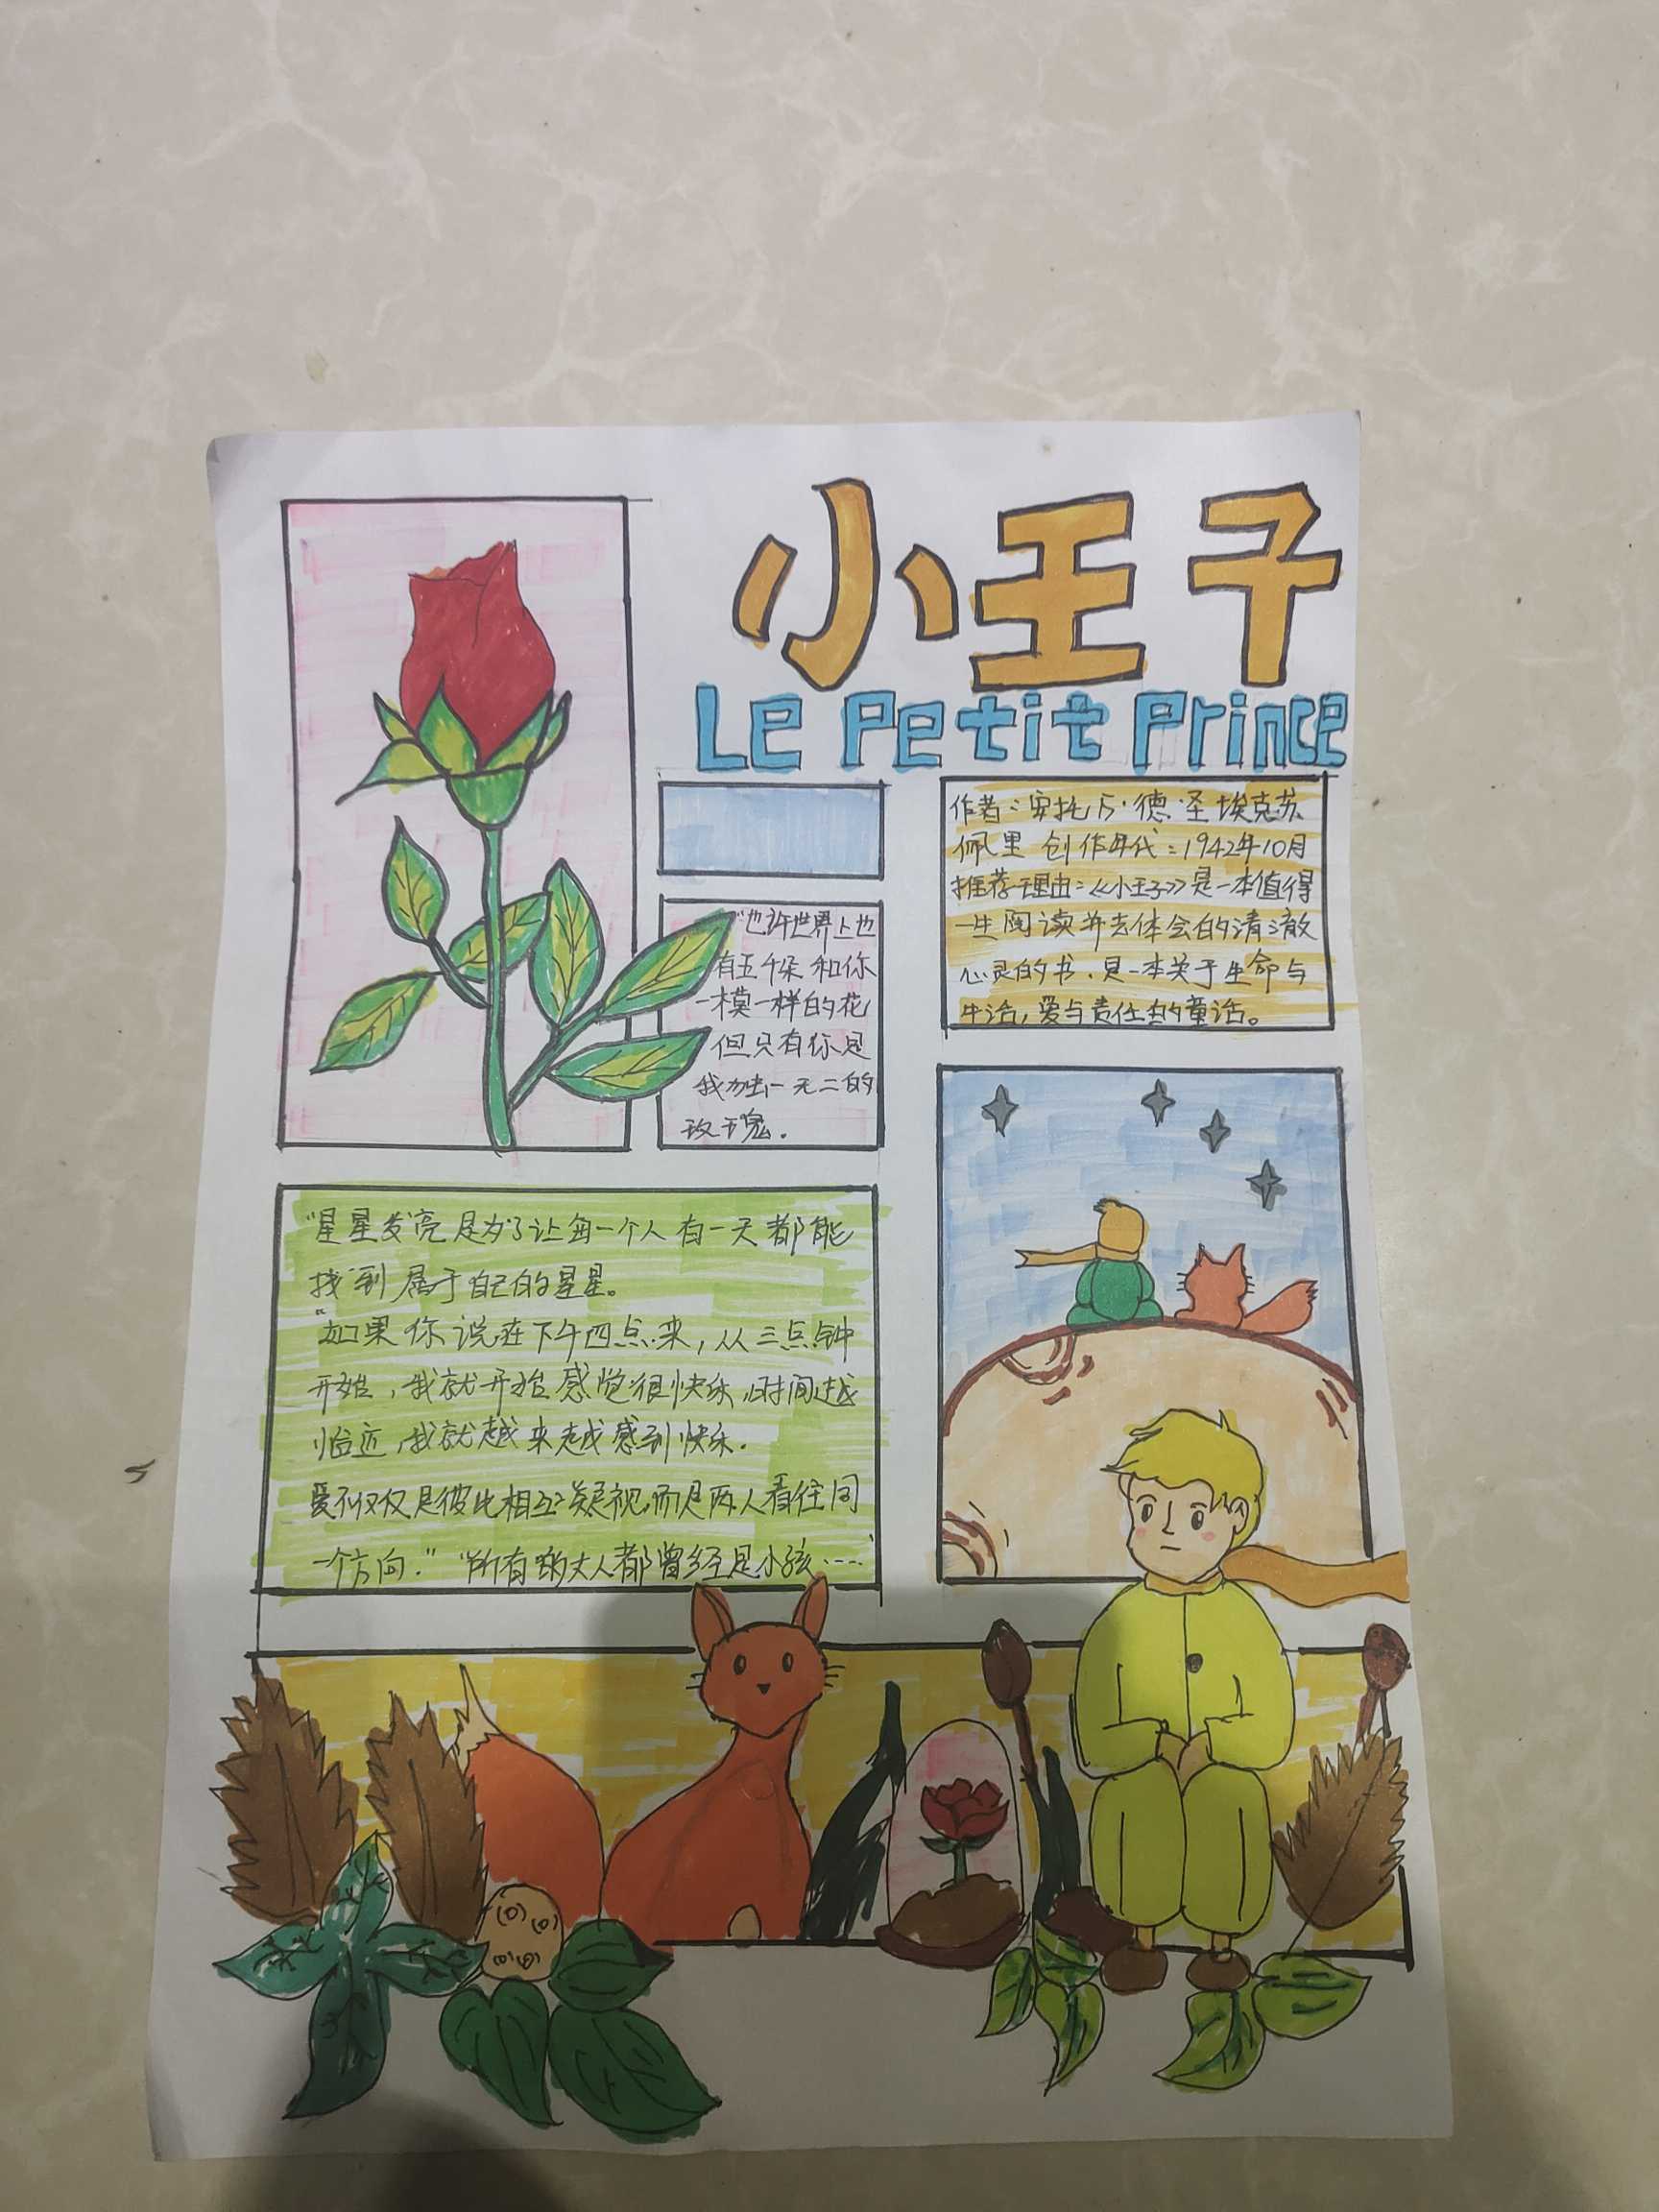 小王子
Le Petit Prince
作者：安托万·德·圣埃克苏
佩里 创作年代：1942年10月
推荐理由：《小王子》是一本值得
一生阅读并去体会的清澈
心灵的书，是一本关于生命与
生活，爱与责任的童话。
“也许世界上也
有五千朵和你
一模一样的花
但只有你是
我独一无二的
玫瑰.
“星星发亮是为了让每一个人有一天都能
找到属于自己的星星。
“如果你说在下午四点来，从三点钟
开始，我就开始感觉很快乐，时间越
临近，我就越来越感到快乐.
爱不仅仅是彼此相互凝视，而是两人看往同
一个方向.” “所有的大人都曾经是小孩……